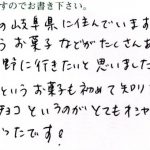 すのでお書き下さい。
の岐阜県に住んでいます
うお菓子などがたくさんあ
野に行きたいと思いました
というお菓子も初めて知り
チョコというのがとてもオシャ
ったです!